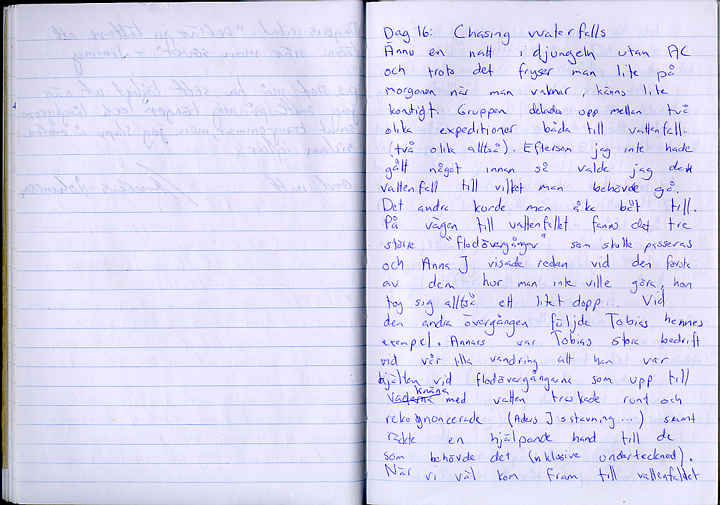 Dag 16: Chasing waterfalls
Ännu en natt i djungeln utan AC
och trots det fryser man lite på
morgonen när man vaknar, känns lite
konstigt. Gruppen delades upp mellan två
olika expeditioner båda till vattenfall.
(två olika alltså). Eftersom jag inte hade
gått något innan så valde jag det
vattenfall till vilket man behövde gå.
Det andra kunde man åka båt till.
På vägen till vattenfallet fanns det tre
större "flodövergångar" som skulle passeras
och Anna J visade redan vid den första
av dem hur man inte ville göra, hon
tog sig alltså ett litet dopp... Vid
den andra övergången följde Tobias hennes
exempel. Annars var Tobias stora bedrift
vid vår lilla vandring att han var
hjälten vid flodövergångarna som upp till
knäna med vatten traskade runt och
rekognoncerade (Aders J s stavning...) samt
räckte en hjälpande hand till de
som behövde det (inklusive undertecknad).
När vi väl kom fram till vattenfallet